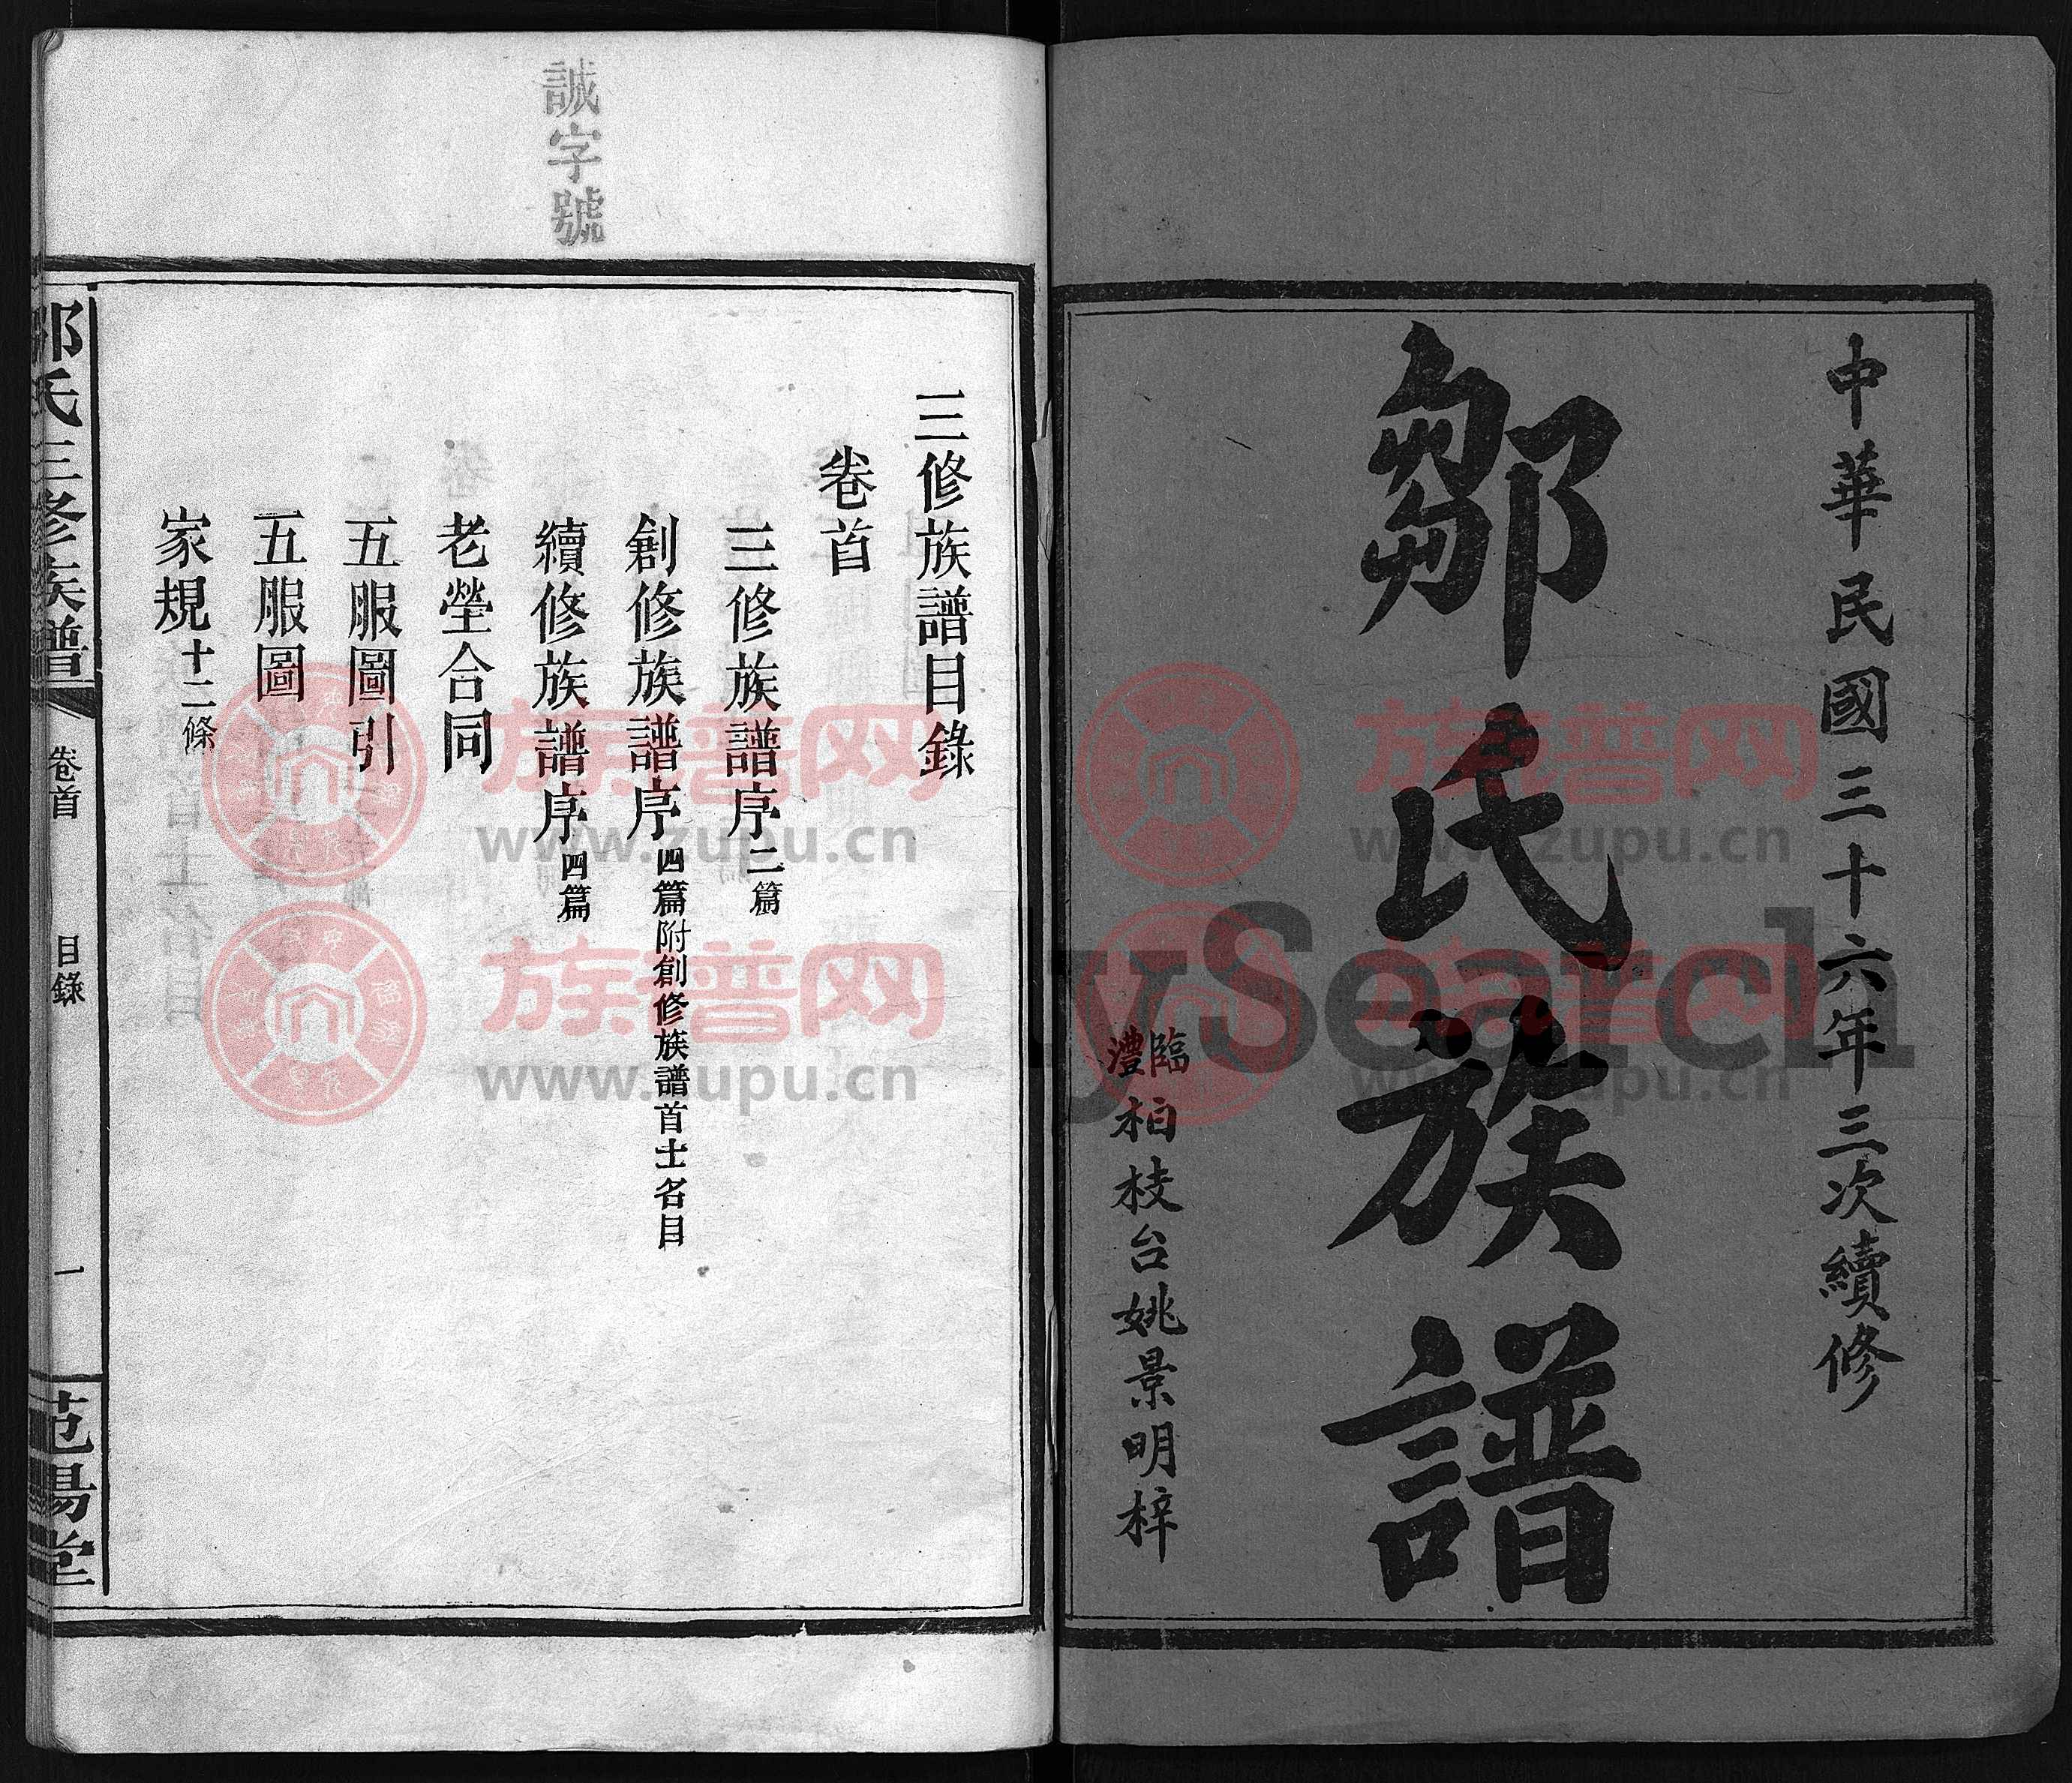 中華民國三十六年三次續修
鄒氏族譜
臨澧柏枝台姚景明梓
誠字號
三修族譜目錄
卷首
三修族譜序二篇
創修族譜序四篇附創修族譜首士名目
續修族譜序四篇
老塋合同
五服圖引
五服圖
家規十二條
鄒氏三修族譜
卷首
目錄
一
范陽堂
族譜网
www.zupu.cn
族譜网
www.zupu.cn
族譜网
www.zupu.cn
族譜网
www.zupu.cn
ySearch